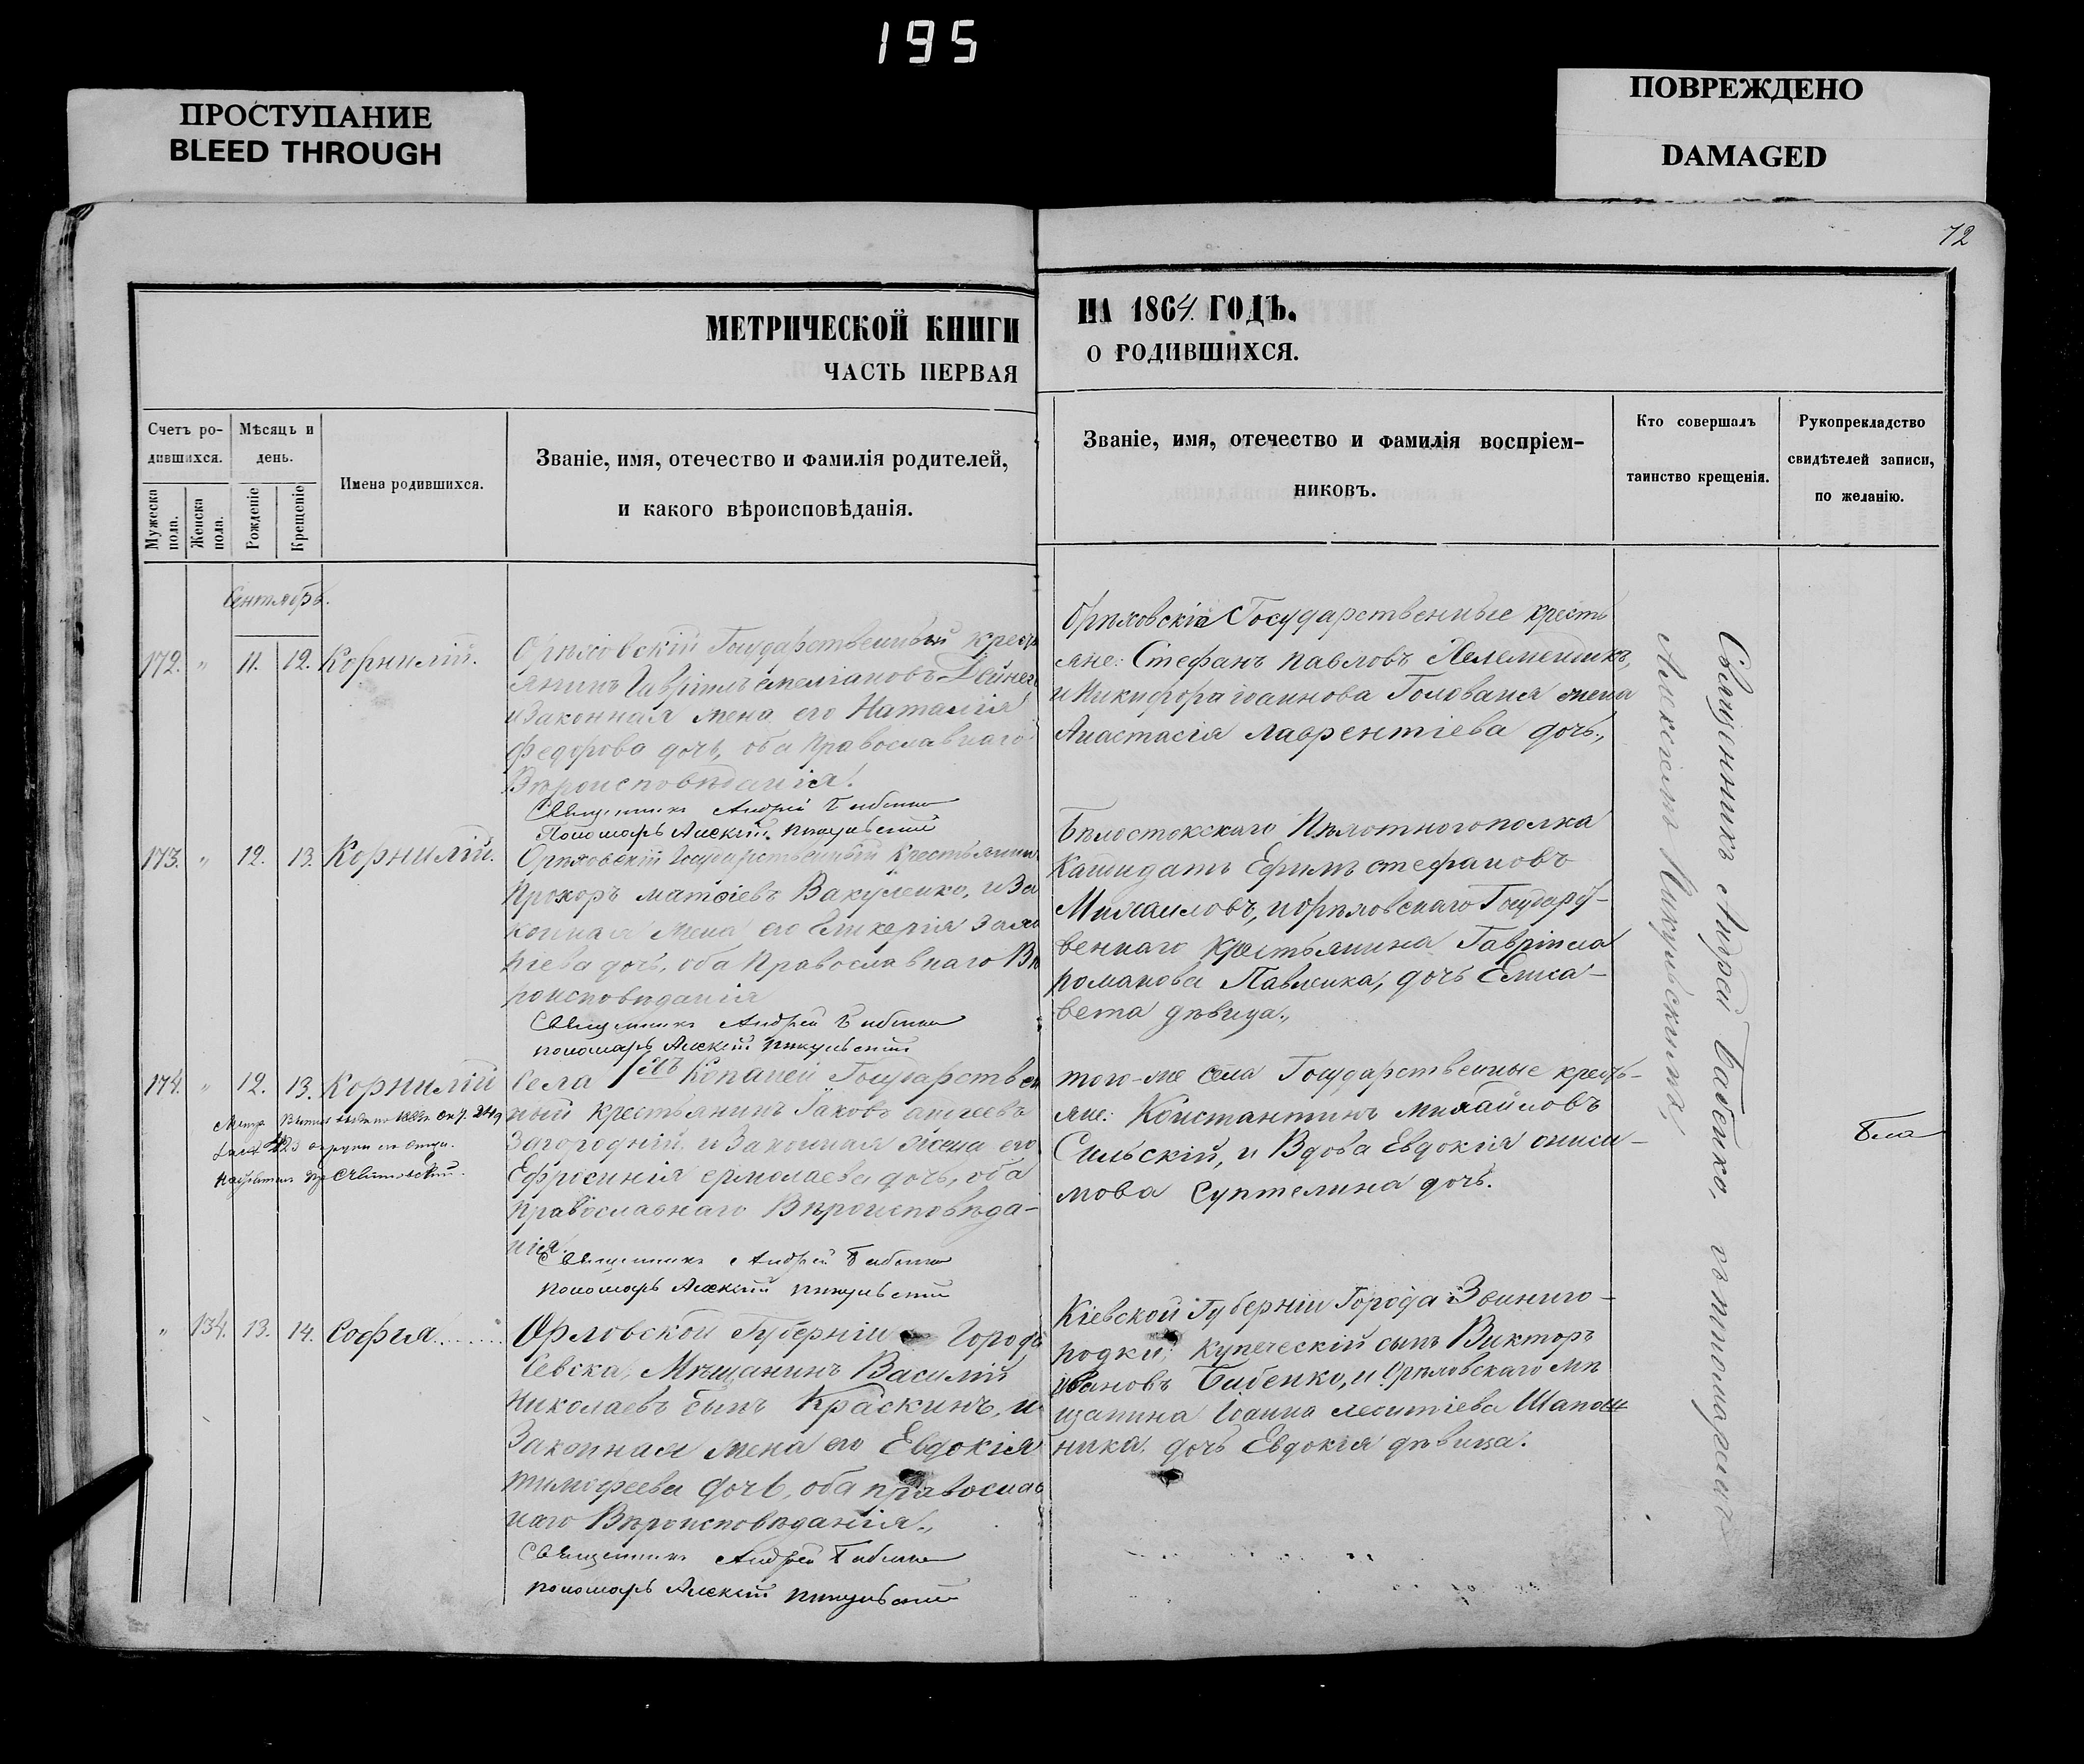 195
ПРОСТУПАНИЕ
BLEED THROUGH
ПОВРЕЖДЕНО
DAMAGED
72
МЕТРИЧЕСКОЙ КНИГИ
ЧАСТЬ ПЕРВАЯ
НА 1864. ГОДЪ.
О РОДИВШИХСЯ.
Счетъ ро-
дившихся.
Мужеска пола.
Женска пола.
Мѣсяцъ и
день.
Рожденіе
Крещеніе
Имена родившихся.
Званіе, имя, отечество и фамилія родителей,
и какого вѣроисповѣданія.
Званіе, имя, отечество и фамилія воспріем-
никовъ.
Кто совершалъ
таинство крещенія.
Рукопрекладство
свидѣтелей записи,
по желанію.
Сентябрь.
172. " 11. 12. Корнилій.
Орѣховскій Государственный крест
янинъ Гавріилъ Емеліановъ Дейнег
и Законная жена его Наталія
Федорова дочь, оба Православнаго
Вѣроисповѣданія.
Священникъ Андрей Бабенко
Пономарь Алексій Никульскій
Орѣховскіе Государственные кресть
яне: Стефанъ Павловъ
и Никифора Іоаннова Голованя жена
Анастасія Лаврентіева дочь.,
173. " 12. 13. Корнилій.
Орѣховскій Государственный Крестьянин
Прохоръ Матѳіевъ Вакуленко, и За
конная жена его Гликерія
дочь, оба Православнаго Вѣ
роисповѣданія
Священникъ Андрей Бабенко
пономарь Алексій Никульскій
Бѣлостокскаго Пѣхотного полка
Кандидатъ Ефимъ Стефановъ
Михаиловъ, и Орѣховскаго Государст-
веннаго крестьянина Гавріила
Романова Павленка, дочь Елиса-
вета дѣвица.,
174. " 12. 13. Корнилій
Села Копаней Государствен
ный крестьянинъ Іаковъ Андреевъ
Загородній, и Законная жена его
Ефросинія Ермолаева дочь, оба
Православнаго Вѣроисповѣда-
нія.
Священникъ Андрей Бабенко
пономарь Алексій Никульскій
того-же села Государственные кресть-
яне: Константинъ Михайловъ
Сильскій, и Вдова Евдокія Ониси-
мова Суптелина дочь.
" 134. 13. 14. Софія.......
Орловской Губерніи Города
Севска, Мѣщанинъ Василій
Николаевъ сынъ Краскинъ, и
Законная жена его Евдокія
Тимофеева дочь, оба православ
наго Вѣроисповѣданія.,
Священникъ Андрей Бабенко
пономарь Алексій Никульскій
Кіевской Губерніи Города Звиниго-
родки, купеческій сынъ Викторъ
Ивановъ Бабенко, и Орѣховскаго мѣ
щанина Іоанна Леонтіева Шапош
ника дочь Евдокія дѣвица.
Священникъ Андрей Бабенко, съ пономаремъ
Алексіемъ Никульскимъ,